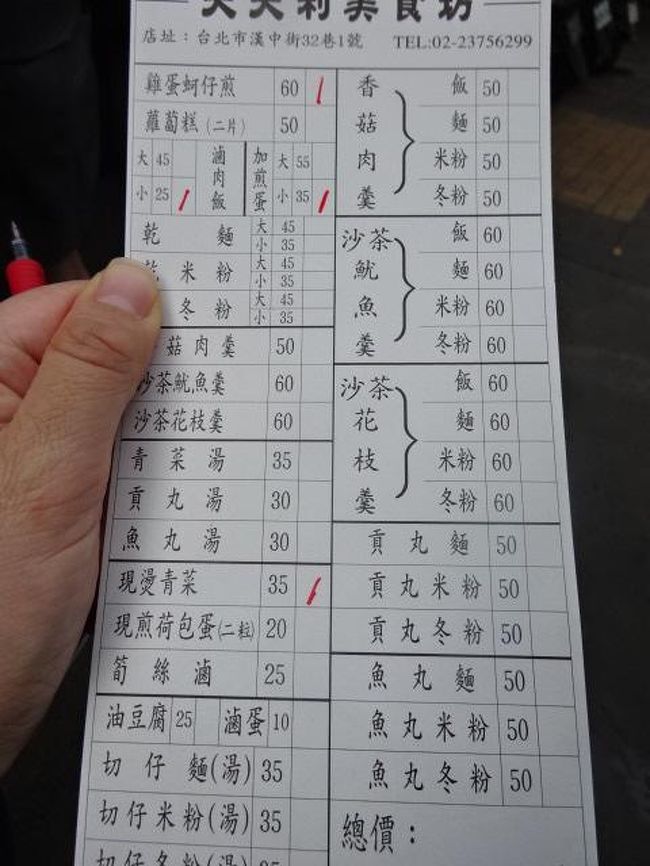 天天利美食坊
店址：台北市漢中街32巷1號 TEL:02-23756299
雞蛋蚵仔煎 60
蘿蔔糕（二片） 50
滷肉飯 大 45 小 25
加煎蛋 大 55 小 35
乾麵 大 45 小 35
米粉 大 45 小 35
冬粉 大 45 小 35
菇肉羹 50
沙茶魷魚羹 60
沙茶花枝羹 60
青菜湯 35
貢丸湯 30
魚丸湯 30
現燙青菜 35
現煎荷包蛋(二粒) 20
筍絲滷 25
油豆腐 25 滷蛋 10
切仔麵(湯) 35
切仔米粉(湯) 35
切仔冬粉(湯)
香菇肉羹
飯 50
麵 50
米粉 50
冬粉 50
沙茶魷魚羹
飯 60
麵 60
米粉 60
冬粉 60
沙茶花枝羹
飯 60
麵 60
米粉 60
冬粉 60
貢丸麵 50
貢丸米粉 50
貢丸冬粉 50
魚丸麵 50
魚丸米粉 50
魚丸冬粉 50
總價：